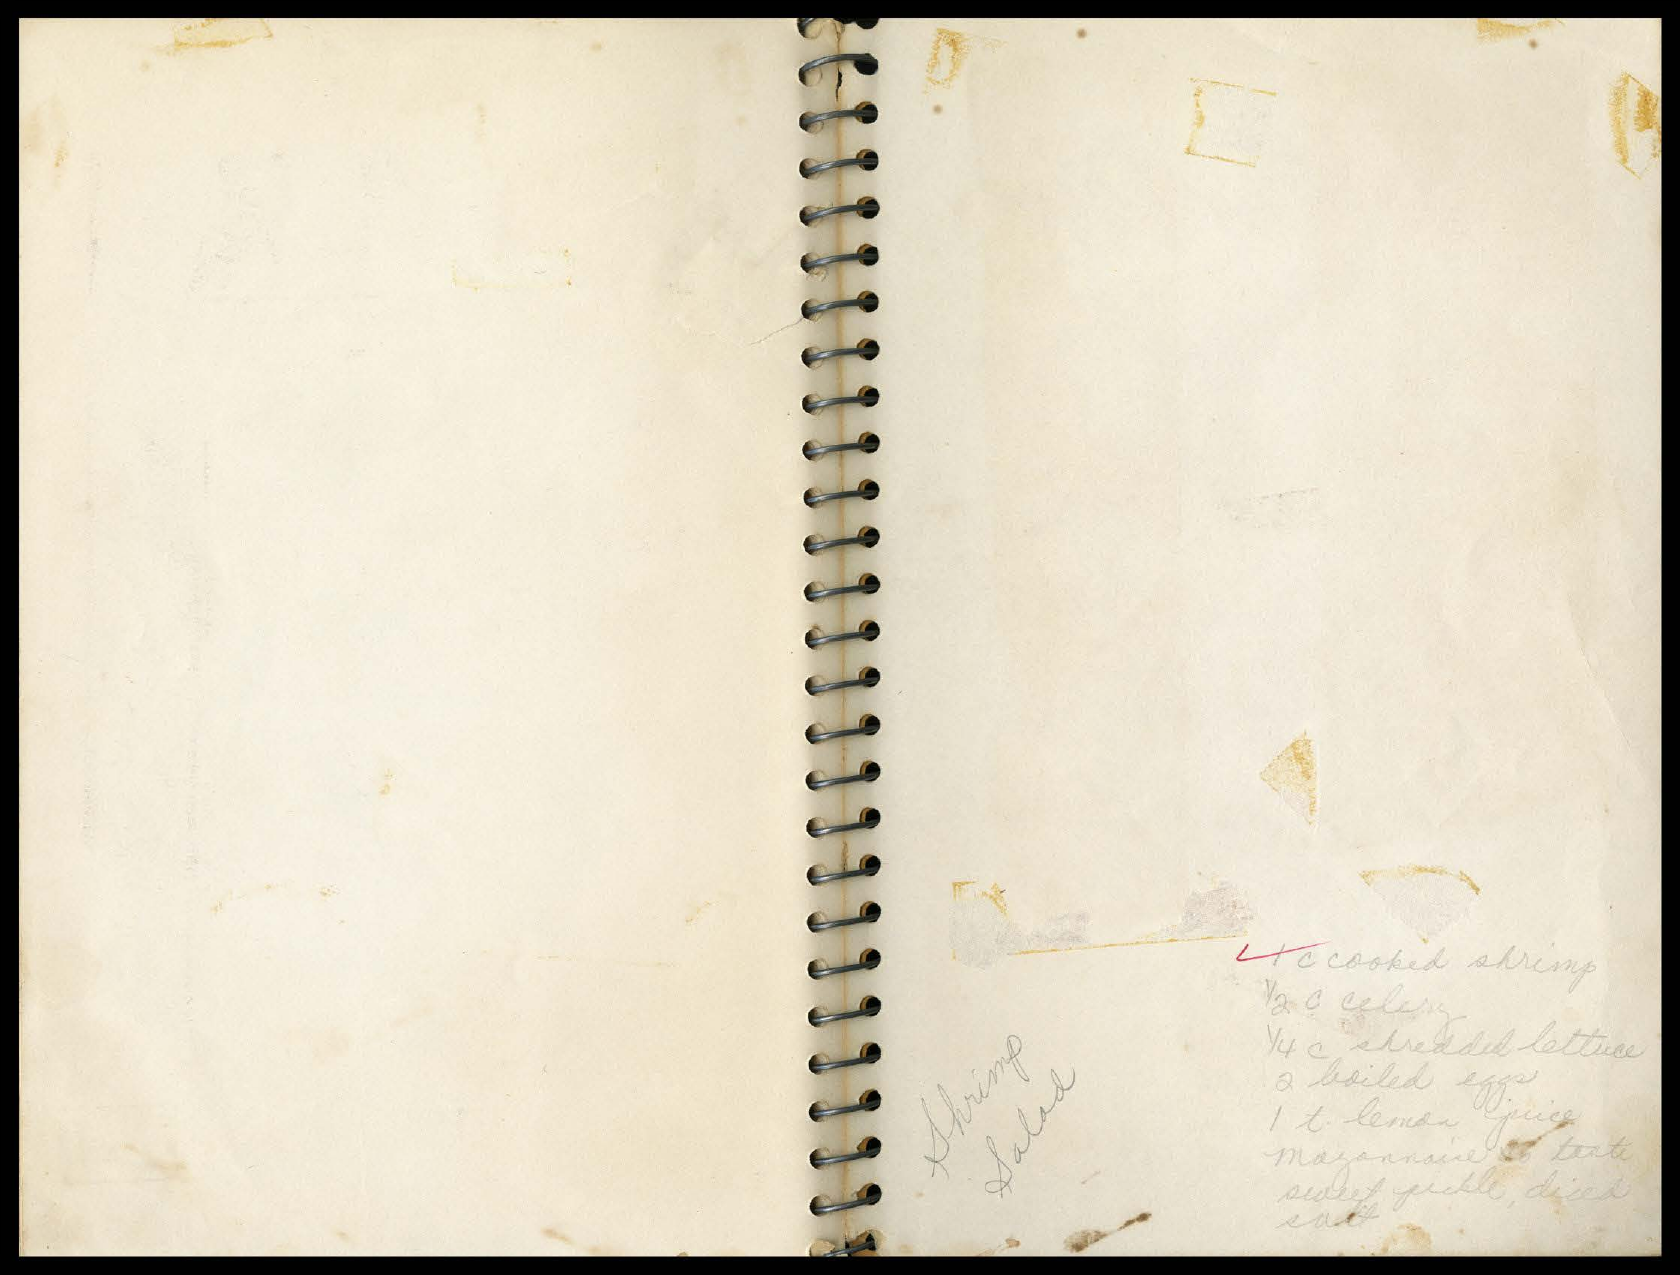 Shrimp
Salad
1 c cooked shrimp
1/2 c celery
1/4 c shredded lettuce
2 boiled eggs
1 t. lemon juice
mayonnaise to taste
sweet pickle, diced
salt